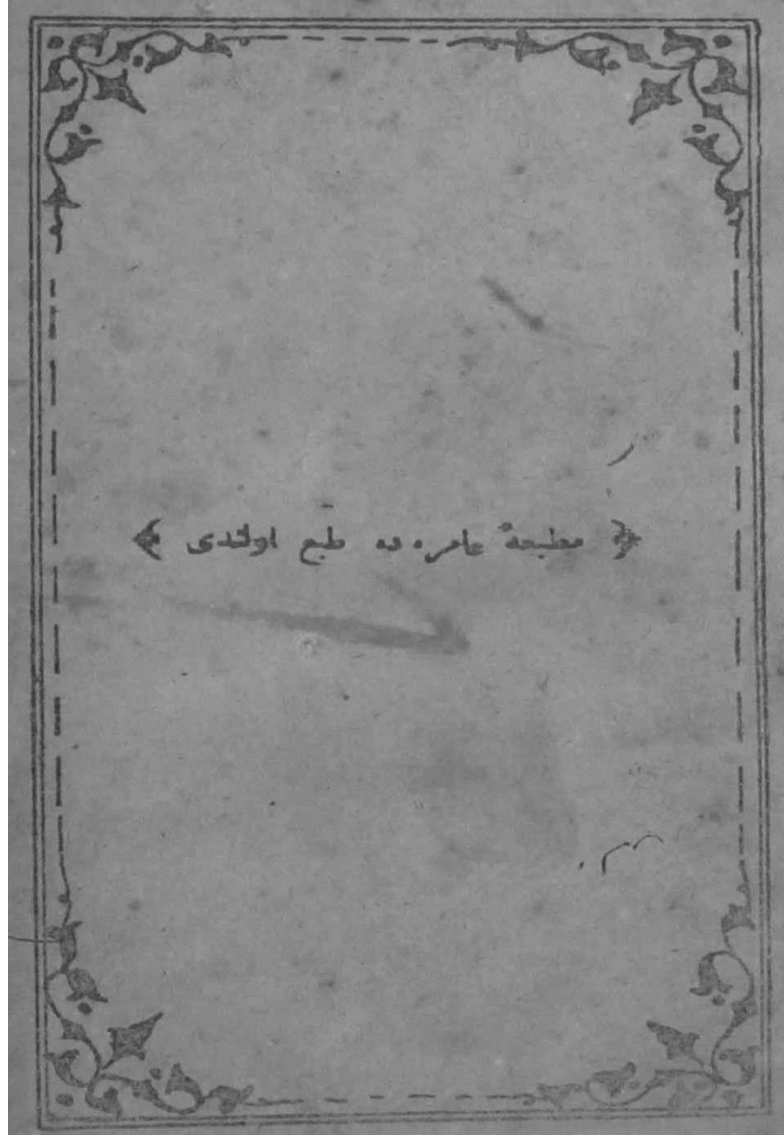 ﴿ مطبعهٔ عامره ده طبع اولندى ﴾